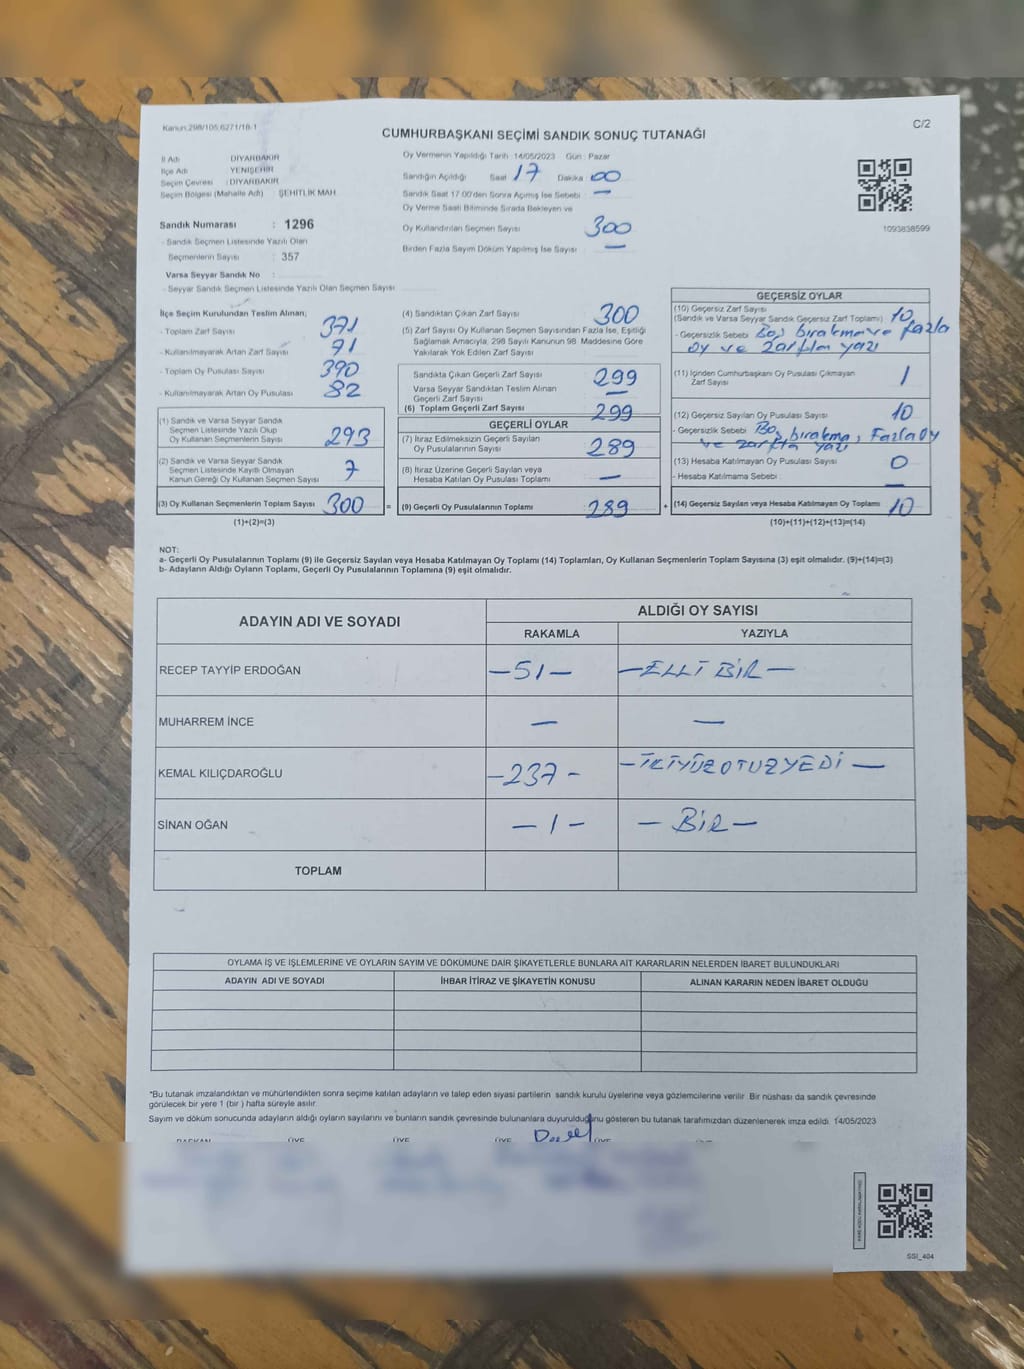 Kanun:298/105;6271/18-1
C/2
CUMHURBAŞKANI SEÇİMİ SANDIK SONUÇ TUTANAĞI
İl Adı DİYARBAKIR
İlçe Adı YENİŞEHİR
Seçim Çevresi : DİYARBAKIR
Seçim Bölgesi (Mahalle Adı) : ŞEHİTLİK MAH.
Oy Vermenin Yapıldığı Tarih 14/05/2023 Gün : Pazar
Sandığın Açıldığı Saat 17 Dakika : 00
Sandık Saat 17:00'den Sonra Açılmış İse Sebebi : —
Oy Verme Saati Bitiminde Sırada Bekleyen ve
Oy Kullandırılan Seçmen Sayısı 300
Birden Fazla Sayım Döküm Yapılmış İse Sayısı —
1093838599
Sandık Numarası : 1296
- Sandık Seçmen Listesinde Yazılı Olan
Seçmenlerin Sayısı : 357
Varsa Seyyar Sandık No :
- Seyyar Sandık Seçmen Listesinde Yazılı Olan Seçmen Sayısı
İlçe Seçim Kurulundan Teslim Alınan;
- Toplam Zarf Sayısı 371
- Kullanılmayarak Artan Zarf Sayısı 71
- Toplam Oy Pusulası Sayısı 390
- Kullanılmayarak Artan Oy Pusulası 82
(1) Sandık ve Varsa Seyyar Sandık
Seçmen Listesinde Yazılı Olup
Oy Kullanan Seçmenlerin Sayısı 293
(2) Sandık ve Varsa Seyyar Sandık
Seçmen Listesinde Kayıtlı Olmayan
Kanun Gereği Oy Kullanan Seçmen Sayısı 7
(3) Oy Kullanan Seçmenlerin Toplam Sayısı 300 =
(1)+(2)=(3)
(4) Sandıktan Çıkan Zarf Sayısı 300
(5) Zarf Sayısı Oy Kullanan Seçmen Sayısından Fazla İse, Eşitliği
Sağlamak Amacıyla, 298 Sayılı Kanunun 98. Maddesine Göre
Yakılarak Yok Edilen Zarf Sayısı
Sandıkta Çıkan Geçerli Zarf Sayısı 299
Varsa Seyyar Sandıktan Teslim Alınan
Geçerli Zarf Sayısı —
(6) Toplam Geçerli Zarf Sayısı 299
GEÇERLİ OYLAR
(7) İtiraz Edilmeksizin Geçerli Sayılan
Oy Pusulalarının Sayısı 289
(8) İtiraz Üzerine Geçerli Sayılan veya
Hesaba Katılan Oy Pusulası Toplamı —
(9) Geçerli Oy Pusulalarının Toplamı 289 +
GEÇERSİZ OYLAR
(10) Geçersiz Zarf Sayısı
(Sandık ve Varsa Seyyar Sandık Geçersiz Zarf Toplamı) 10
- Geçersizlik Sebebi Boş bırakma ve fazla
oy ve zarfta yazı
(11) İçinden Cumhurbaşkanı Oy Pusulası Çıkmayan
Zarf Sayısı 1
(12) Geçersiz Sayılan Oy Pusulası Sayısı 10
- Geçersizlik Sebebi Boş bırakma, Fazla oy
ve zarfta yazı
(13) Hesaba Katılmayan Oy Pusulası Sayısı 0
- Hesaba Katılmama Sebebi —
(14) Geçersiz Sayılan veya Hesaba Katılmayan Oy Toplamı 10
(10)+(11)+(12)+(13)=(14)
NOT:
a- Geçerli Oy Pusulalarının Toplamı (9) ile Geçersiz Sayılan veya Hesaba Katılmayan Oy Toplamı (14) Toplamları, Oy Kullanan Seçmenlerin Toplam Sayısına (3) eşit olmalıdır. (9)+(14)=(3)
b- Adayların Aldığı Oyların Toplamı, Geçerli Oy Pusulalarının Toplamına (9) eşit olmalıdır.
ADAYIN ADI VE SOYADI
ALDIĞI OY SAYISI
RAKAMLA YAZIYLA
RECEP TAYYİP ERDOĞAN —51— —ELLİ BİR—
MUHARREM İNCE — —
KEMAL KILIÇDAROĞLU —237— —İKİYÜZOTUZYEDİ—
SİNAN OĞAN —1— —BİR—
TOPLAM
OYLAMA İŞ VE İŞLEMLERİNE VE OYLARIN SAYIM VE DÖKÜMÜNE DAİR ŞİKAYETLERLE BUNLARA AİT KARARLARIN NELERDEN İBARET BULUNDUKLARI
ADAYIN ADI VE SOYADI İHBAR İTİRAZ VE ŞİKAYETİN KONUSU ALINAN KARARIN NEDEN İBARET OLDUĞU
*Bu tutanak imzalandıktan ve mühürlendikten sonra seçime katılan adayların ve talep eden siyasi partilerin sandık kurulu üyelerine veya gözlemcilerine verilir. Bir nüshası da sandık çevresinde
görülecek bir yere 1 (bir ) hafta süreyle asılır.
Sayım ve döküm sonucunda adayların aldığı oyların sayılarını ve bunların sandık çevresinde bulunanlara duyurulduğunu gösteren bu tutanak tarafımızdan düzenlenerek imza edildi. 14/05/2023
BAŞKAN ÜYE ÜYE ÜYE ÜYE
SSİ_404